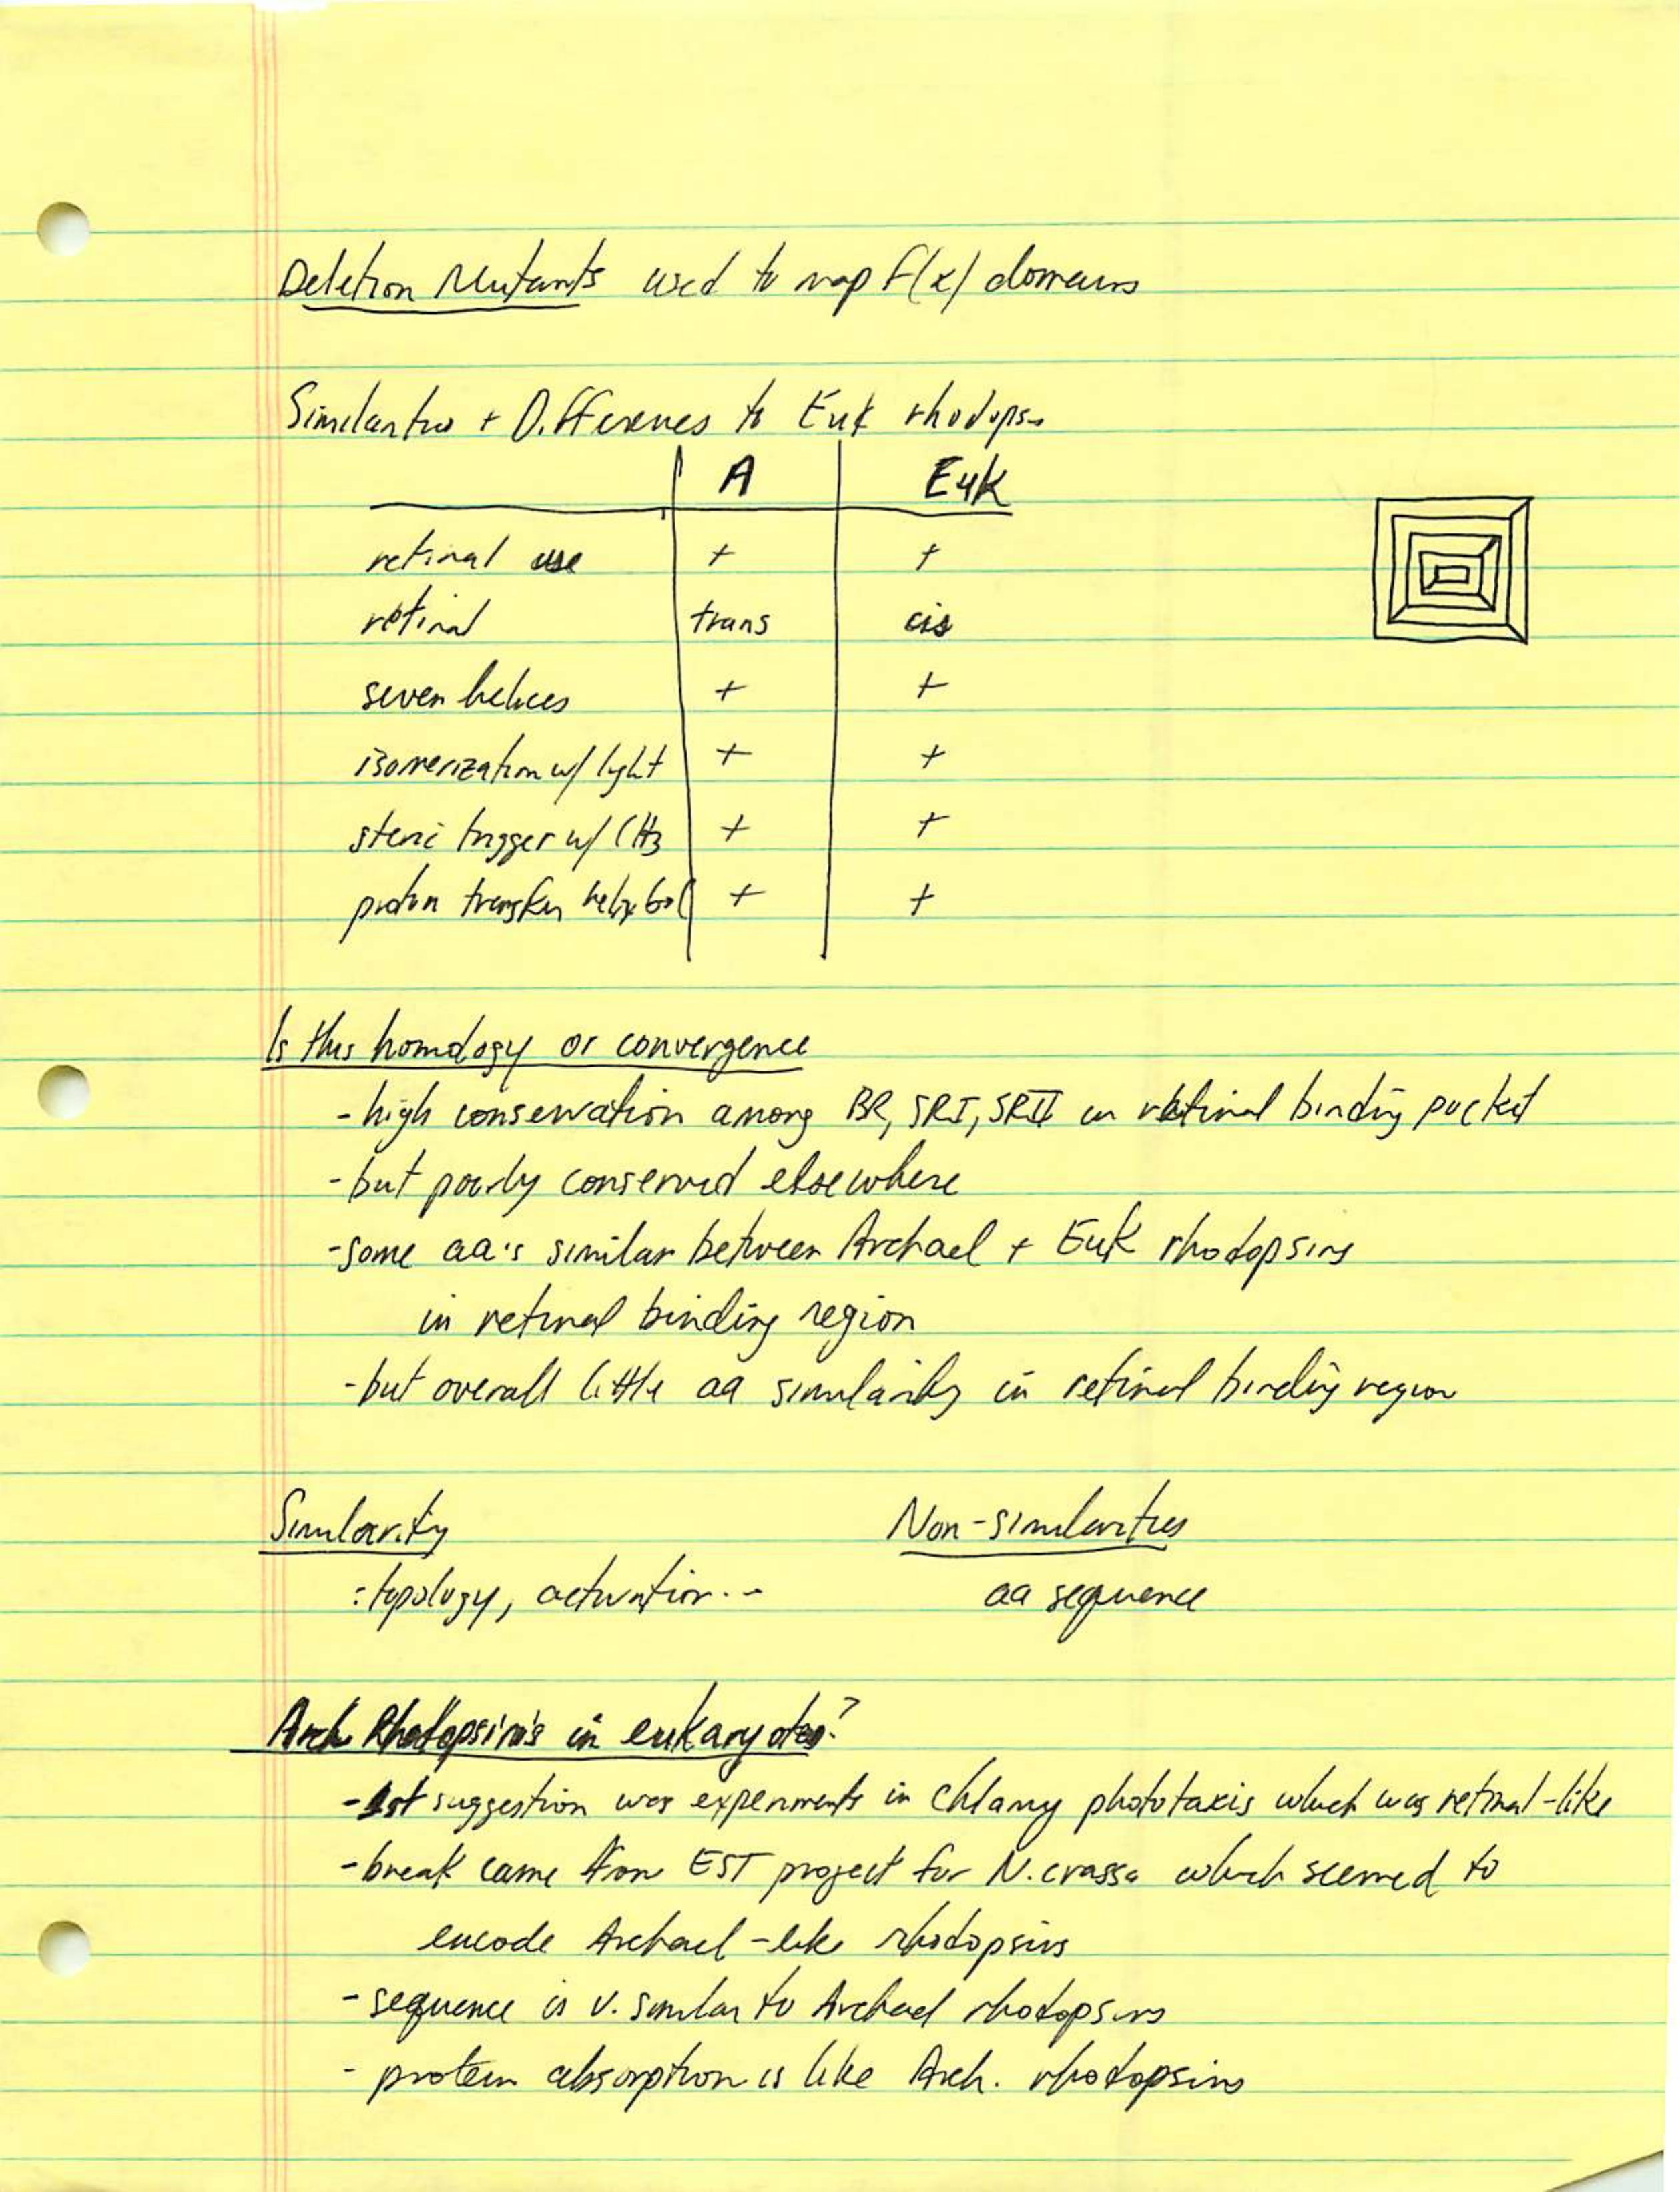 Deletion Mutants used to map f(x) domains
Similarities + Differences to Euk rhodopsin
A Euk
retinal use + +
retinal trans cis
seven helices + +
isomerization w/ light + +
steric trigger w/ CH3 + +
proton transfer helix + +
Is this homology or convergence
- high conservation among BR, SRI, SRII in retinal binding pocket
- but poorly conserved elsewhere
- some aa's similar between Archael + Euk rhodopsins
in retinal binding region
- but overall little aa similarity in retinal binding region
Similarity Non-similarities
: topology, activation... aa sequence
Arch Rhodopsin's in eukaryotes?
- 1st suggestion was experiments in Chlamy phototaxis which was retinal-like
- break came from EST project for N. crassa which seemed to
encode Archael-like rhodopsins
- sequence is v. similar to Archael rhodopsins
- protein absorption is like Arch. rhodopsins